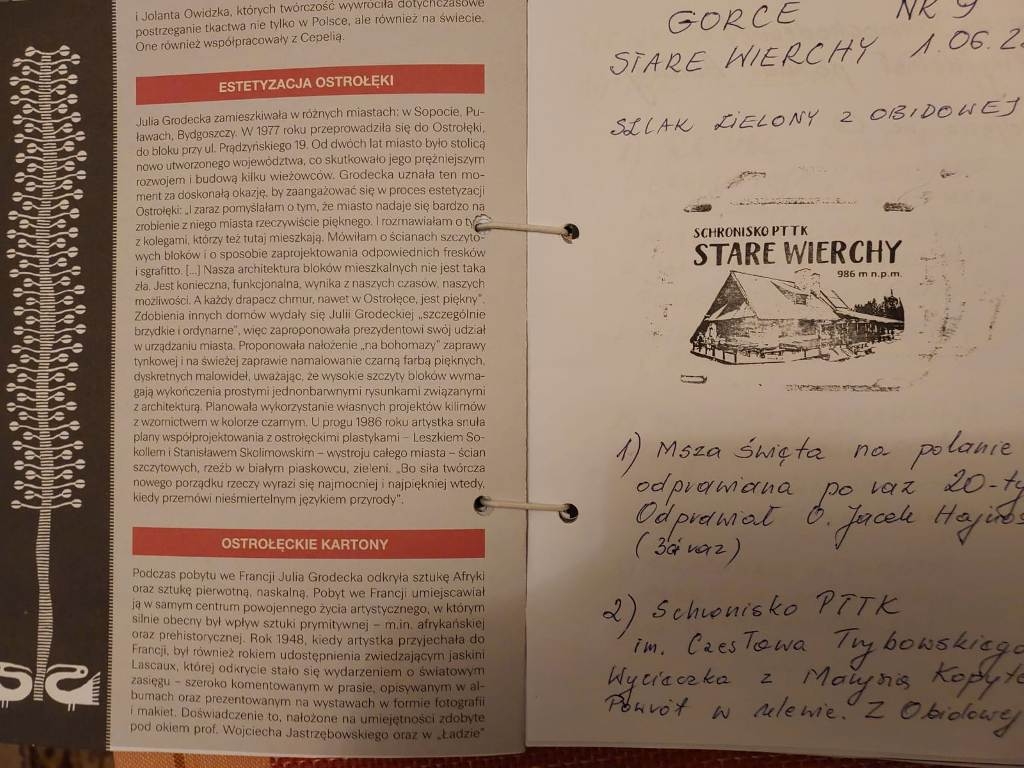 i Jolanta Owidzka, których twórczość wywróciła dotychczasowe
postrzeganie tkactwa nie tylko w Polsce, ale również na świecie.
One również współpracowały z Cepelią.
ESTETYZACJA OSTROŁĘKI
Julia Grodecka zamieszkiwała w różnych miastach: w Sopocie, Pu-
ławach, Bydgoszczy. W 1977 roku przeprowadziła się do Ostrołęki,
do bloku przy ul. Prądzyńskiego 19. Od dwóch lat miasto było stolicą
nowo utworzonego województwa, co skutkowało jego prężniejszym
rozwojem i budową kilku wieżowców. Grodecka uznała ten mo-
ment za doskonałą okazję, by zaangażować się w proces estetyzacji
Ostrołęki: „I zaraz pomyślałam o tym, że miasto nadaje się bardzo na
zrobienie z niego miasta rzeczywiście pięknego. I rozmawiałam o
z kolegami, którzy też tutaj mieszkają. Mówiłam o ścianach szczyto-
wych bloków i o sposobie zaprojektowania odpowiednich fresków
i sgrafitto. [...] Nasza architektura bloków mieszkalnych nie jest taka
zła. Jest konieczna, funkcjonalna, wynika z naszych czasów, naszych
możliwości. A każdy drapacz chmur, nawet w Ostrołęce, jest piękny".
Zdobienia innych domów wydały się Julii Grodeckiej „szczególnie
brzydkie i ordynarne", więc zaproponowała prezydentowi swój udział
w urządzaniu miasta. Proponowała nałożenie „na bohomazy" zaprawy
tynkowej i na świeżej zaprawie namalowanie czarną farbą pięknych,
dyskretnych malowideł, uważając, że wysokie szczyty bloków wyma-
gają wykończenia prostymi jednobarwnymi rysunkami związanymi
z architekturą. Planowała wykorzystanie własnych projektów kilimów
z wzornictwem w kolorze czarnym. U progu 1986 roku artystka snuła
plany współprojektowania z ostrołęckimi plastykami – Leszkiem So-
kołlem i Stanisławem Skolimowskim – wystroju całego miasta – ścian
szczytowych, rzeźb w białym piaskowcu, zieleni. „Bo siła twórcza
nowego porządku rzeczy wyrazi się najmocniej i najpiękniej wtedy,
kiedy przemówi nieśmiertelnym językiem przyrody".
OSTROŁĘCKIE KARTONY
Podczas pobytu we Francji Julia Grodecka odkryła sztukę Afryki
oraz sztukę pierwotną, naskalną. Pobyt we Francji umiejscawiał
ją w samym centrum powojennego życia artystycznego, w którym
silnie obecny był wpływ sztuki prymitywnej – m.in. afrykańskiej
oraz prehistorycznej. Rok 1948, kiedy artystka przyjechała do
Francji, był również rokiem udostępnienia zwiedzającym jaskini
Lascaux, której odkrycie stało się wydarzeniem o światowym
zasięgu – szeroko komentowanym w prasie, opisywanym w al-
bumach oraz prezentowanym na wystawach w formie fotografii
i makiet. Doświadczenie to, nałożone na umiejętności zdobyte
pod okiem prof. Wojciecha Jastrzębowskiego oraz w „Ładzie"
GORCE NR 9
STARE WIERCHY 1.06.2
SZLAK ZIELONY Z OBIDOWEJ
SCHRONISKO PTTK
STARE WIERCHY
986 m n.p.m.
1) Msza Święta na polanie
odprawiana po raz 20-ty
Odprawiał O. Jacek
2) Schronisko PTTK
im. Czesława Trybowskiego
Wycieczka z Marysią
Powrót w ulewie. Z Obidowej